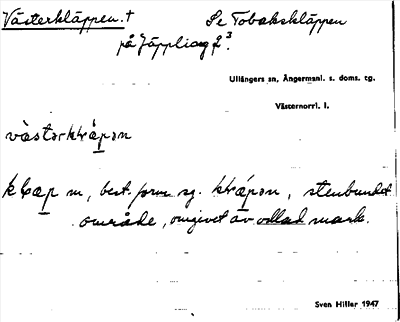 Västerkläppen. † Se Tobakskläppen
på Jäppling 2³.
Ullångers sn, Ångermanl. s. doms. tg.
Västernorrl. l.
västərkläpən
kläp m, best. form sg. kläpən, stenbundet
område, omgivet av odlad mark.
Sven Hiller 1947